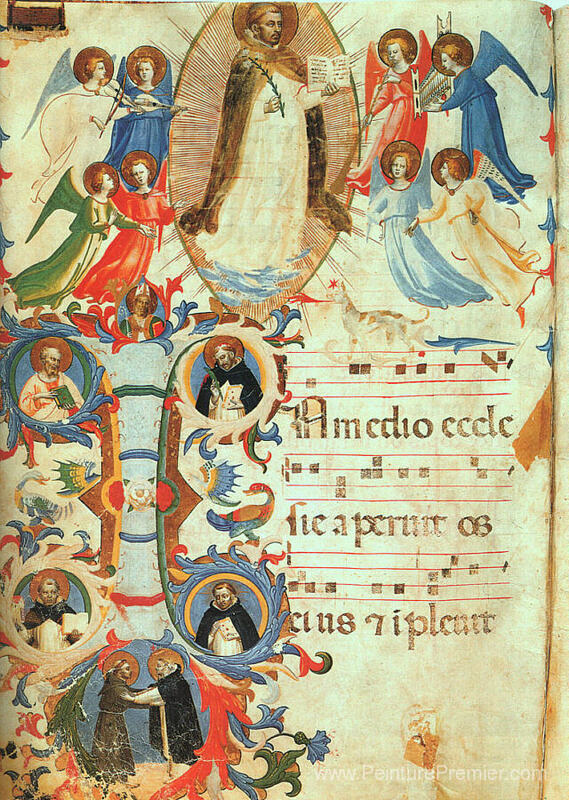 N medio eccle
sie aperuit os
eius ⁊ īpleuit
www.PeinturePremier.com